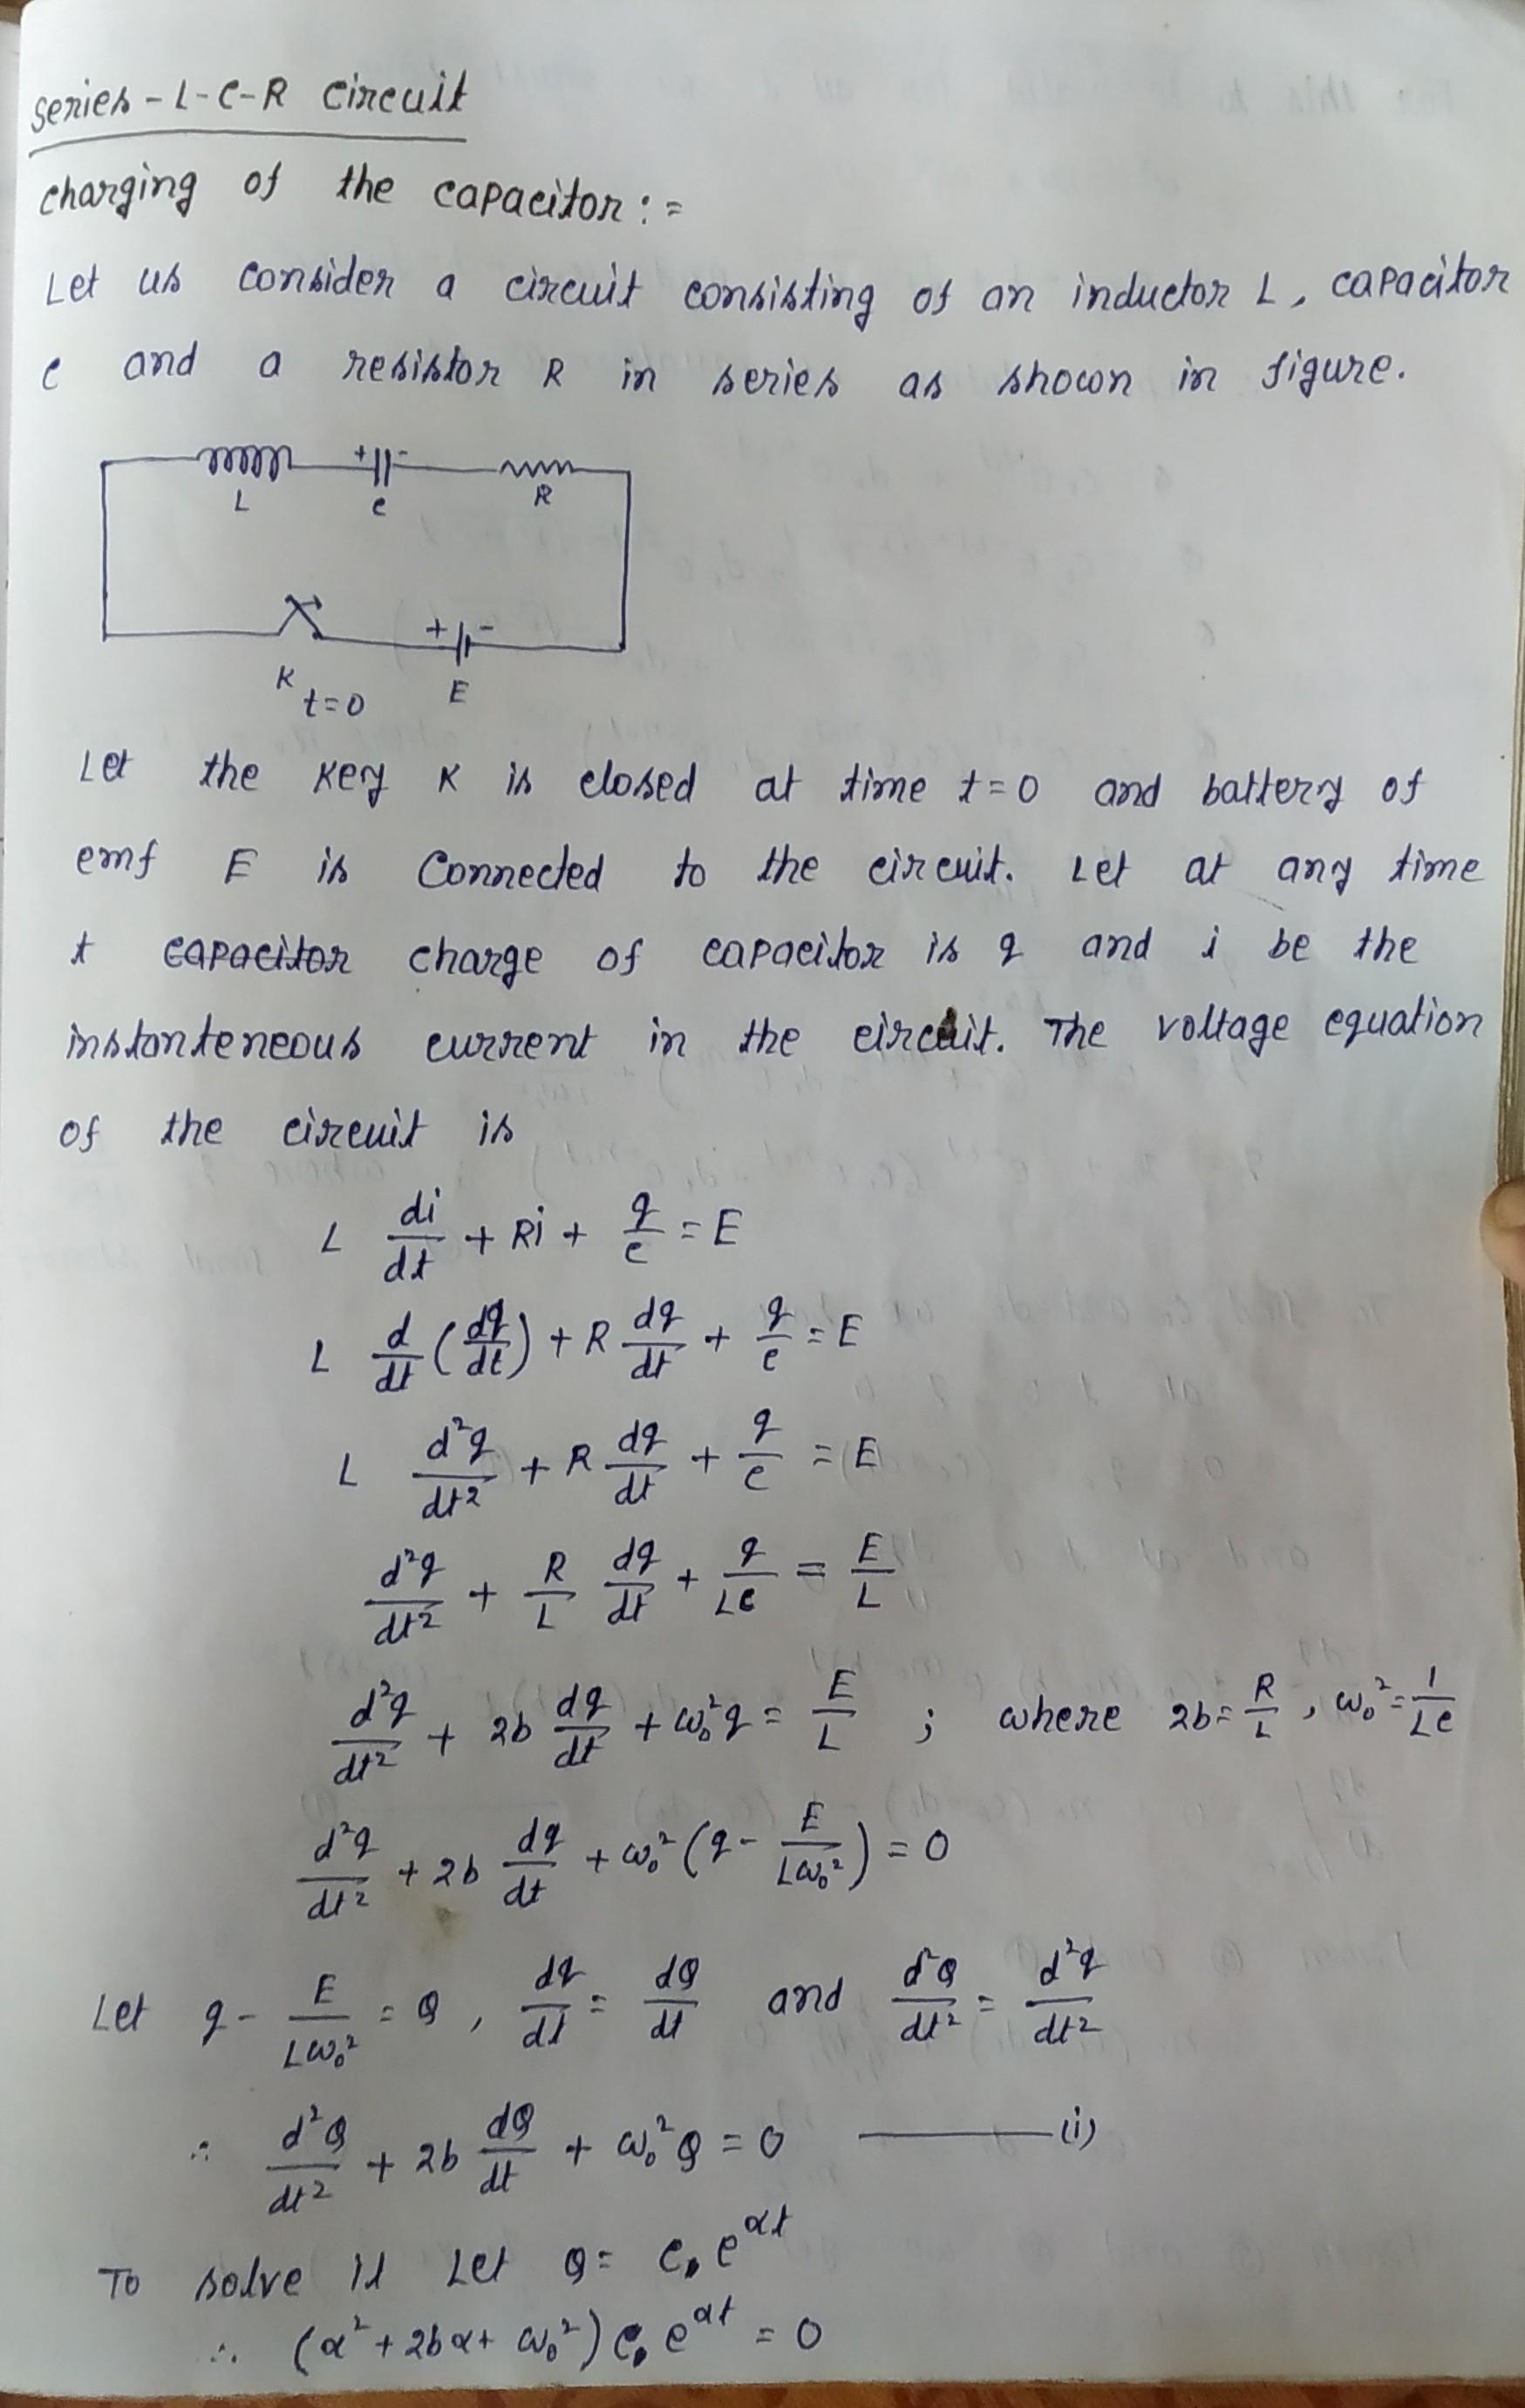 Series - L-C-R Circuit
Charging of the capacitor : =
Let us consider a circuit consisting of an inductor L, capacitor
C and a resistor R in series as shown in figure.
+ -
L C R
+ -
K t=0 E
Let the key K is closed at time t=0 and battery of
emf E is Connected to the circuit. Let at any time
t capacitor charge of capacitor is q and i be the
instanteneous current in the circuit. The voltage equation
of the circuit is
L di/dt + Ri + q/C = E
L d/dt (dq/dt) + R dq/dt + q/C = E
L d²q/dt² + R dq/dt + q/C = E
d²q/dt² + R/L dq/dt + q/LC = E/L
d²q/dt² + 2b dq/dt + ω₀²q = E/L ; where 2b = R/L , ω₀² = 1/LC
d²q/dt² + 2b dq/dt + ω₀² (q - E/Lω₀²) = 0
Let q - E/Lω₀² = Q , dq/dt = dQ/dt and d²Q/dt² = d²q/dt²
∴ d²Q/dt² + 2b dQ/dt + ω₀²Q = 0 ——— (i)
To solve it Let Q = C₀ e^αt
∴ (α² + 2bα + ω₀²) C₀ e^αt = 0